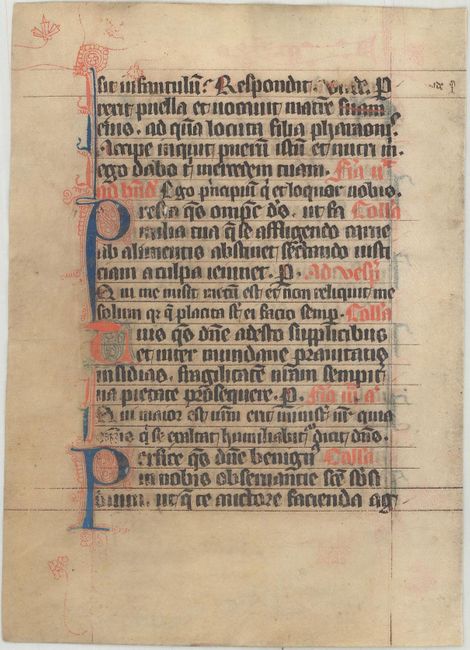 sit infantulū. Respondit. Uade. P
rexit puella et uocauit matrē suam
eius. ad quā locuta filia pharaonis.
Accipe inquit puerum istum et nutri m
ego dabo t mercedem tuam. Fr̄ia ii
ad bn̄d Ego principiū q̄ et loquor uobis.
Presta qs omps ds. ut fa Colla
milia tua q̄ se affligendo carne
ab alimentis abstinet sectando iusti
ciam a culpa ieiunet. P. Ad uesp̄
Qui me misit mecū est et non reliquit me
solum qr q̄ placita st ei facio semp. Colla
Tuis qs dn̄e adesto supplicibus
et inter mundane prauitatis
insidias. fragilitatē nr̄am sempit
na pietate prosequere. P. Fr̄ia iii a
Qui maior est urm̄ erit minist̄ ur̄ quia
omīs q̄ se exaltat humiliabit dicit dn̄s.
Perfice qs dn̄e benign Colla
in nobis obseruantie sc̄e subsi
dium. ut q̄ te auctore facienda ag